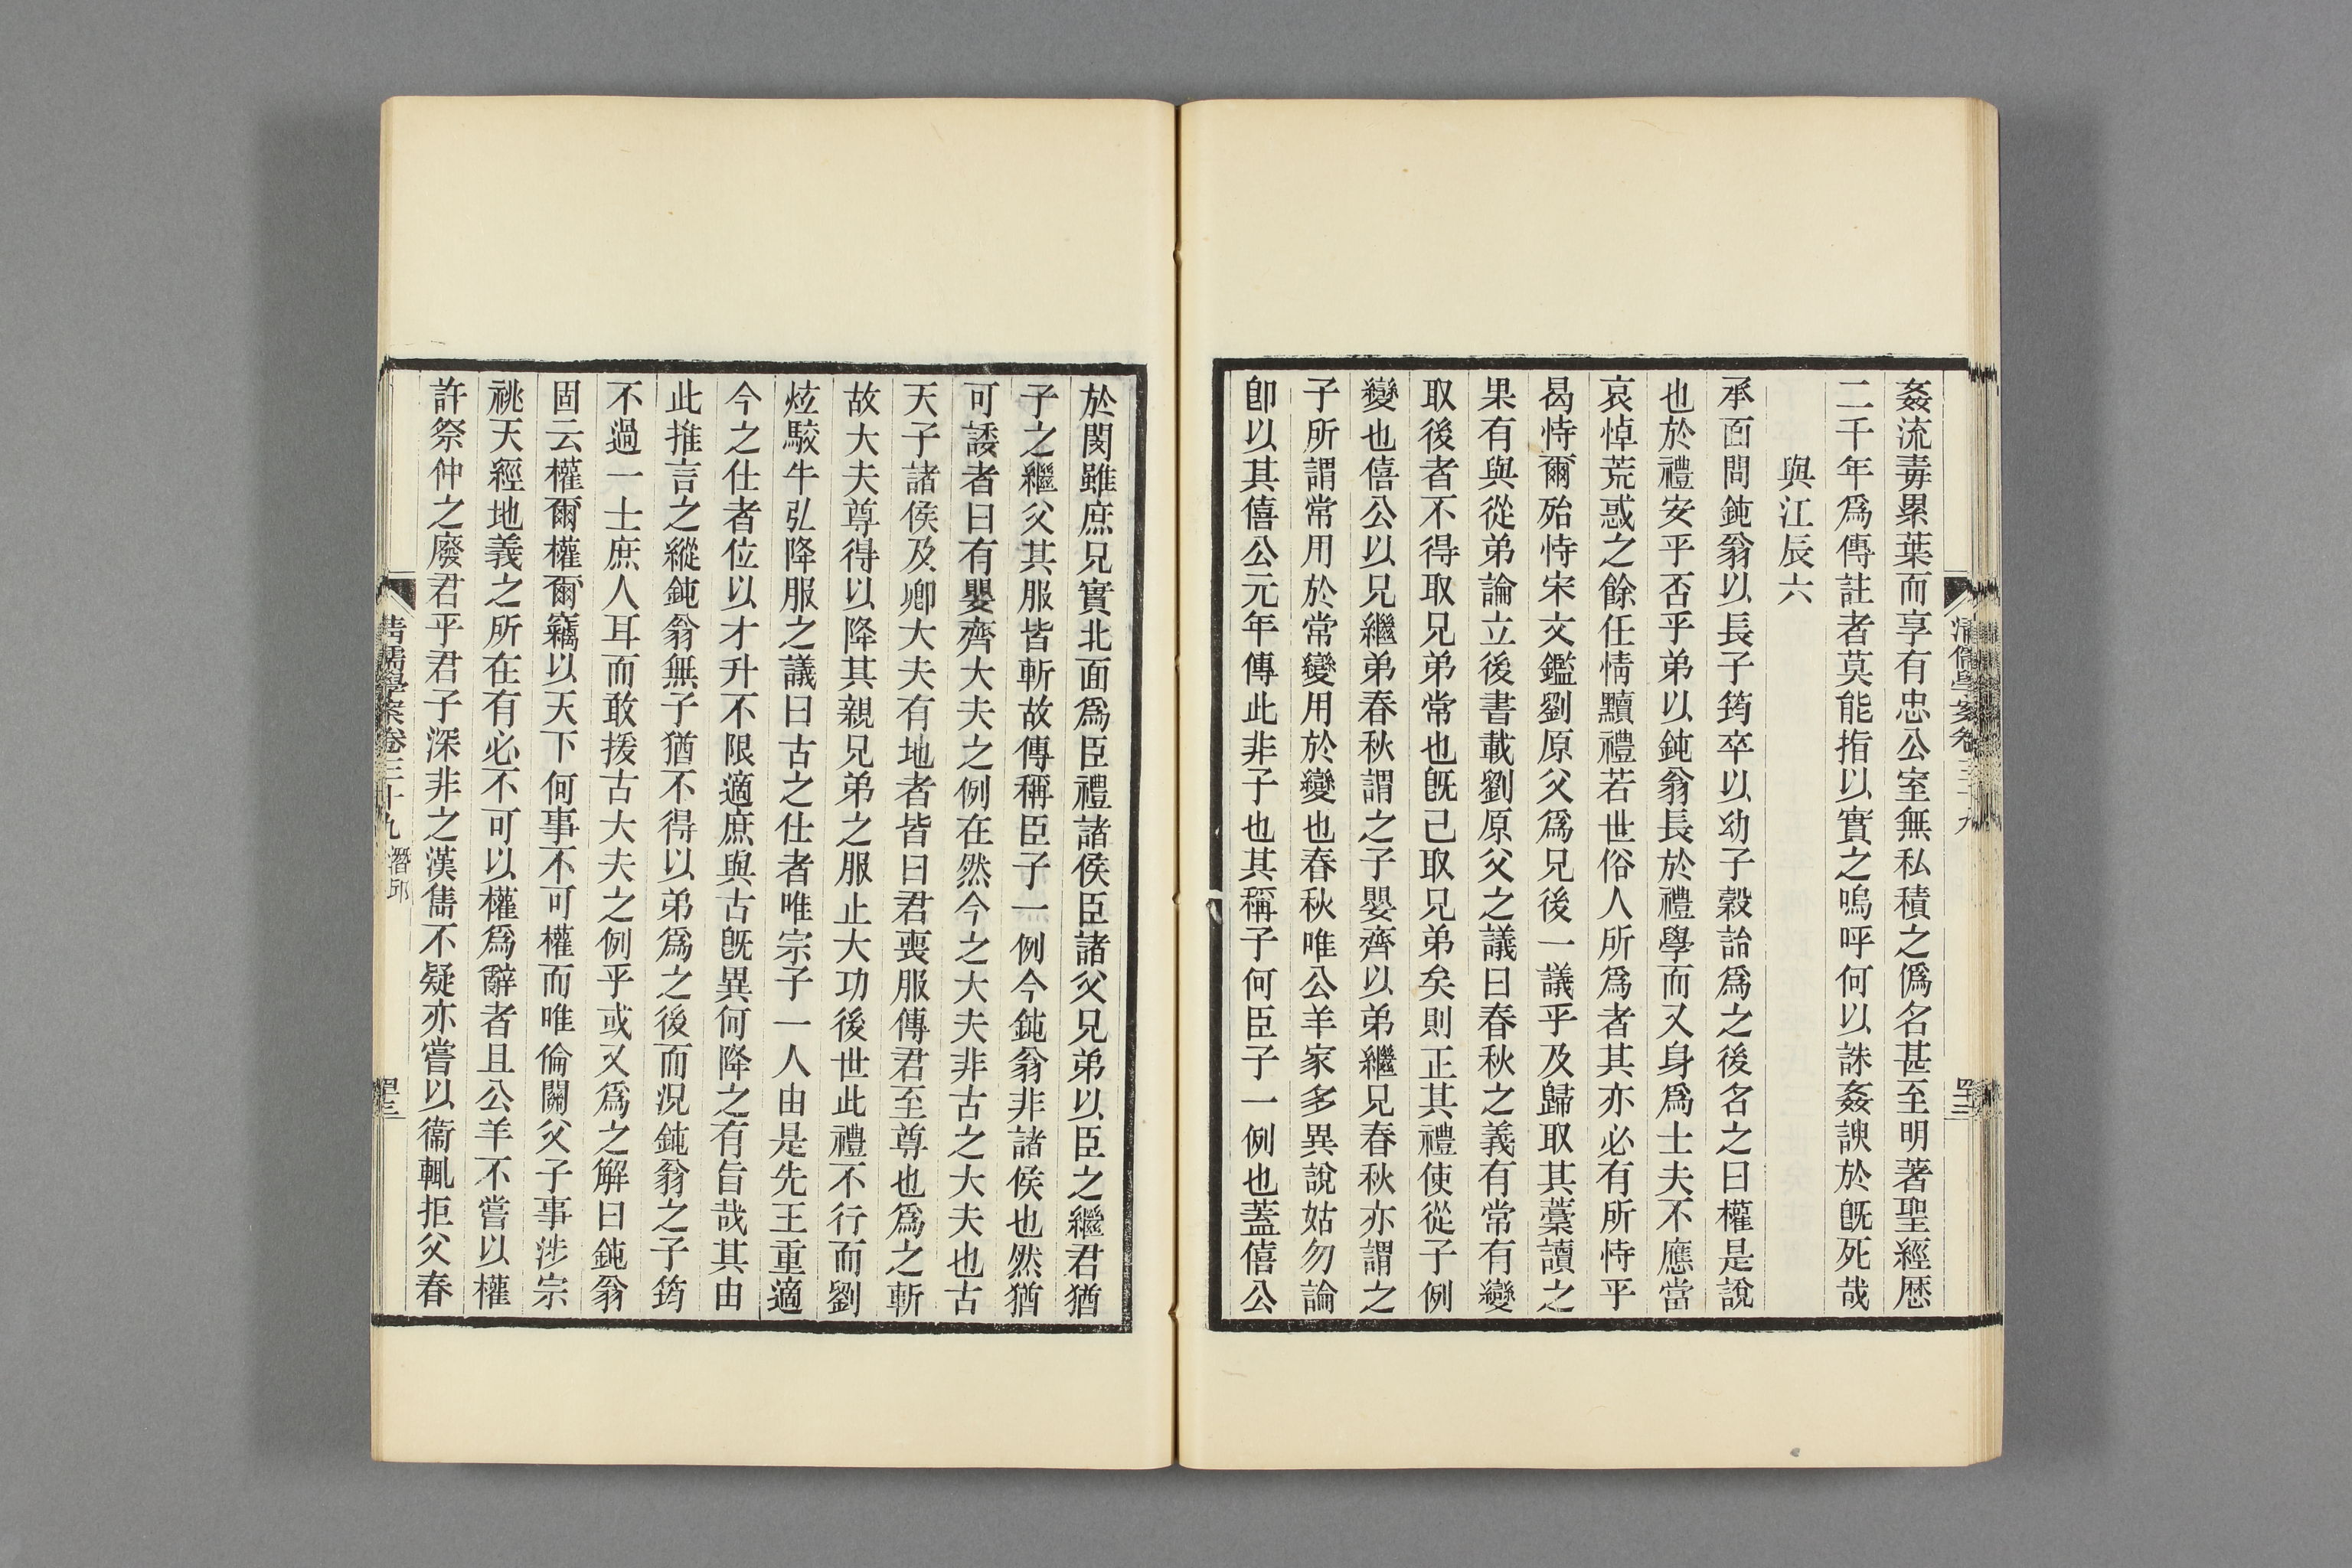 姦流毒累葉而享有忠公室無私積之僞名甚至明著聖經歷
二千年爲傳註者莫能指以實之嗚呼何以誅姦諛於旣死哉
與江辰六
承面問鈍翁以長子筠卒以幼子穀詒爲之後名之曰權是說
也於禮安乎否乎弟以鈍翁長於禮學而又身爲士夫不應當
哀悼荒惑之餘任情黷禮若世俗人所爲者其亦必有所恃乎
曷恃爾殆恃宋文鑑劉原父爲兄後一議乎及歸取其藁讀之
果有與從弟論立後書載劉原父之議曰春秋之義有常有變
取後者不得取兄弟常也旣已取兄弟矣則正其禮使從子例
變也僖公以兄繼弟春秋謂之子嬰齊以弟繼兄春秋亦謂之
子所謂常用於常變用於變也春秋唯公羊家多異說姑勿論
卽以其僖公元年傳此非子也其稱子何臣子一例也蓋僖公
於閔雖庶兄實北面爲臣禮諸侯臣諸父兄弟以臣之繼君猶
子之繼父其服皆斬故傳稱臣子一例今鈍翁非諸侯也然猶
可諉者曰有嬰齊大夫之例在然今之大夫非古之大夫也古
天子諸侯及卿大夫有地者皆曰君喪服傳君至尊也爲之斬
故大夫尊得以降其親兄弟之服止大功後世此禮不行而劉
炫駮牛弘降服之議曰古之仕者唯宗子一人由是先王重適
今之仕者位以才升不限適庶與古旣異何降之有旨哉其由
此推言之縱鈍翁無子猶不得以弟爲之後而況鈍翁之子筠
不過一士庶人耳而敢援古大夫之例乎或又爲之解曰鈍翁
固云權爾權爾竊以天下何事不可權而唯倫關父子事涉宗
祧天經地義之所在有必不可以權爲辭者且公羊不嘗以權
許祭仲之廢君乎君子深非之漢雋不疑亦嘗以衞輒拒父春
清儒學案卷三十九 潛邱